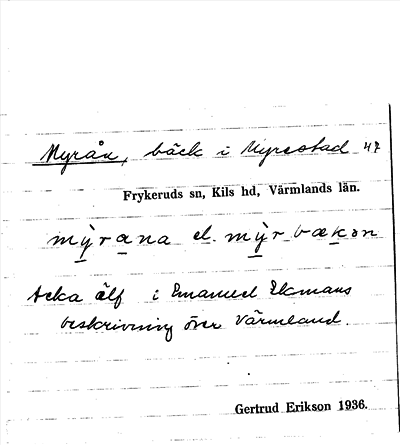 Myrån, bäck i Myrestad 47
Frykeruds sn, Kils hd, Värmlands län.
mỳrana el. mỳrbækən
Acka älf i Emanuel Ekmans
beskrivning över Värmland.
Gertrud Erikson 1936.